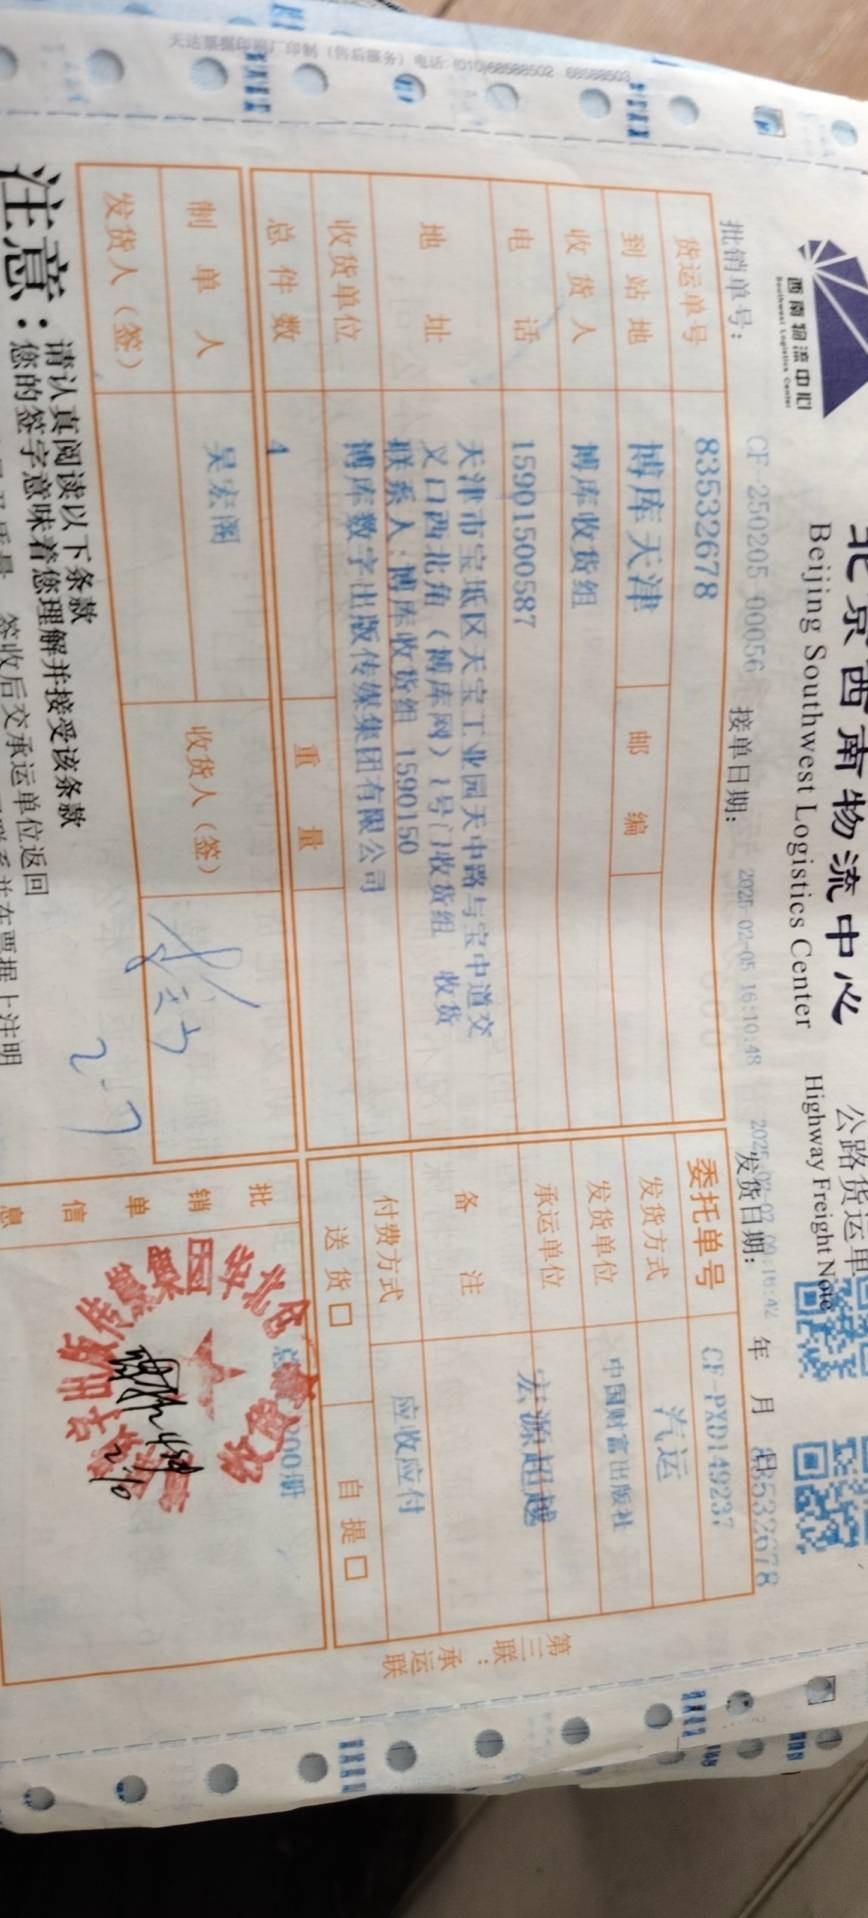 天达票据印刷厂印制（售后服务）电话: (010)68588502 68588503
西南物流中心
Southwest Logistics Center
北京西南物流中心 公路货运单
Beijing Southwest Logistics Center Highway Freight Note
批销单号： CF-250205-00056 接单日期： 2025-02-05 16:10:48 发货日期： 年 月 日
83532678
货运单号 83532678 委托单号 CF-PXD149237
到站地 博库天津 邮编 发货方式 汽运
收货人 博库收货组 发货单位 中国财富出版社
电话 15901500587 承运单位 宏源超越
地址 天津市宝坻区天宝工业园天中路与宝中道交
叉口西北角（博库网）1号门收货组 收货
联系人：博库收货组 1590150
备注
收货单位 博库数字出版传媒集团有限公司 付费方式 应收应付
总件数 4 重量 送货□ 自提□
制单人 吴宏阁 收货人（签）
发货人（签）
2-7
批销单信息
00册
第三联：承运联
注意：请认真阅读以下条款
您的签字意味着您理解并接受该条款
签收后交承运单位返回